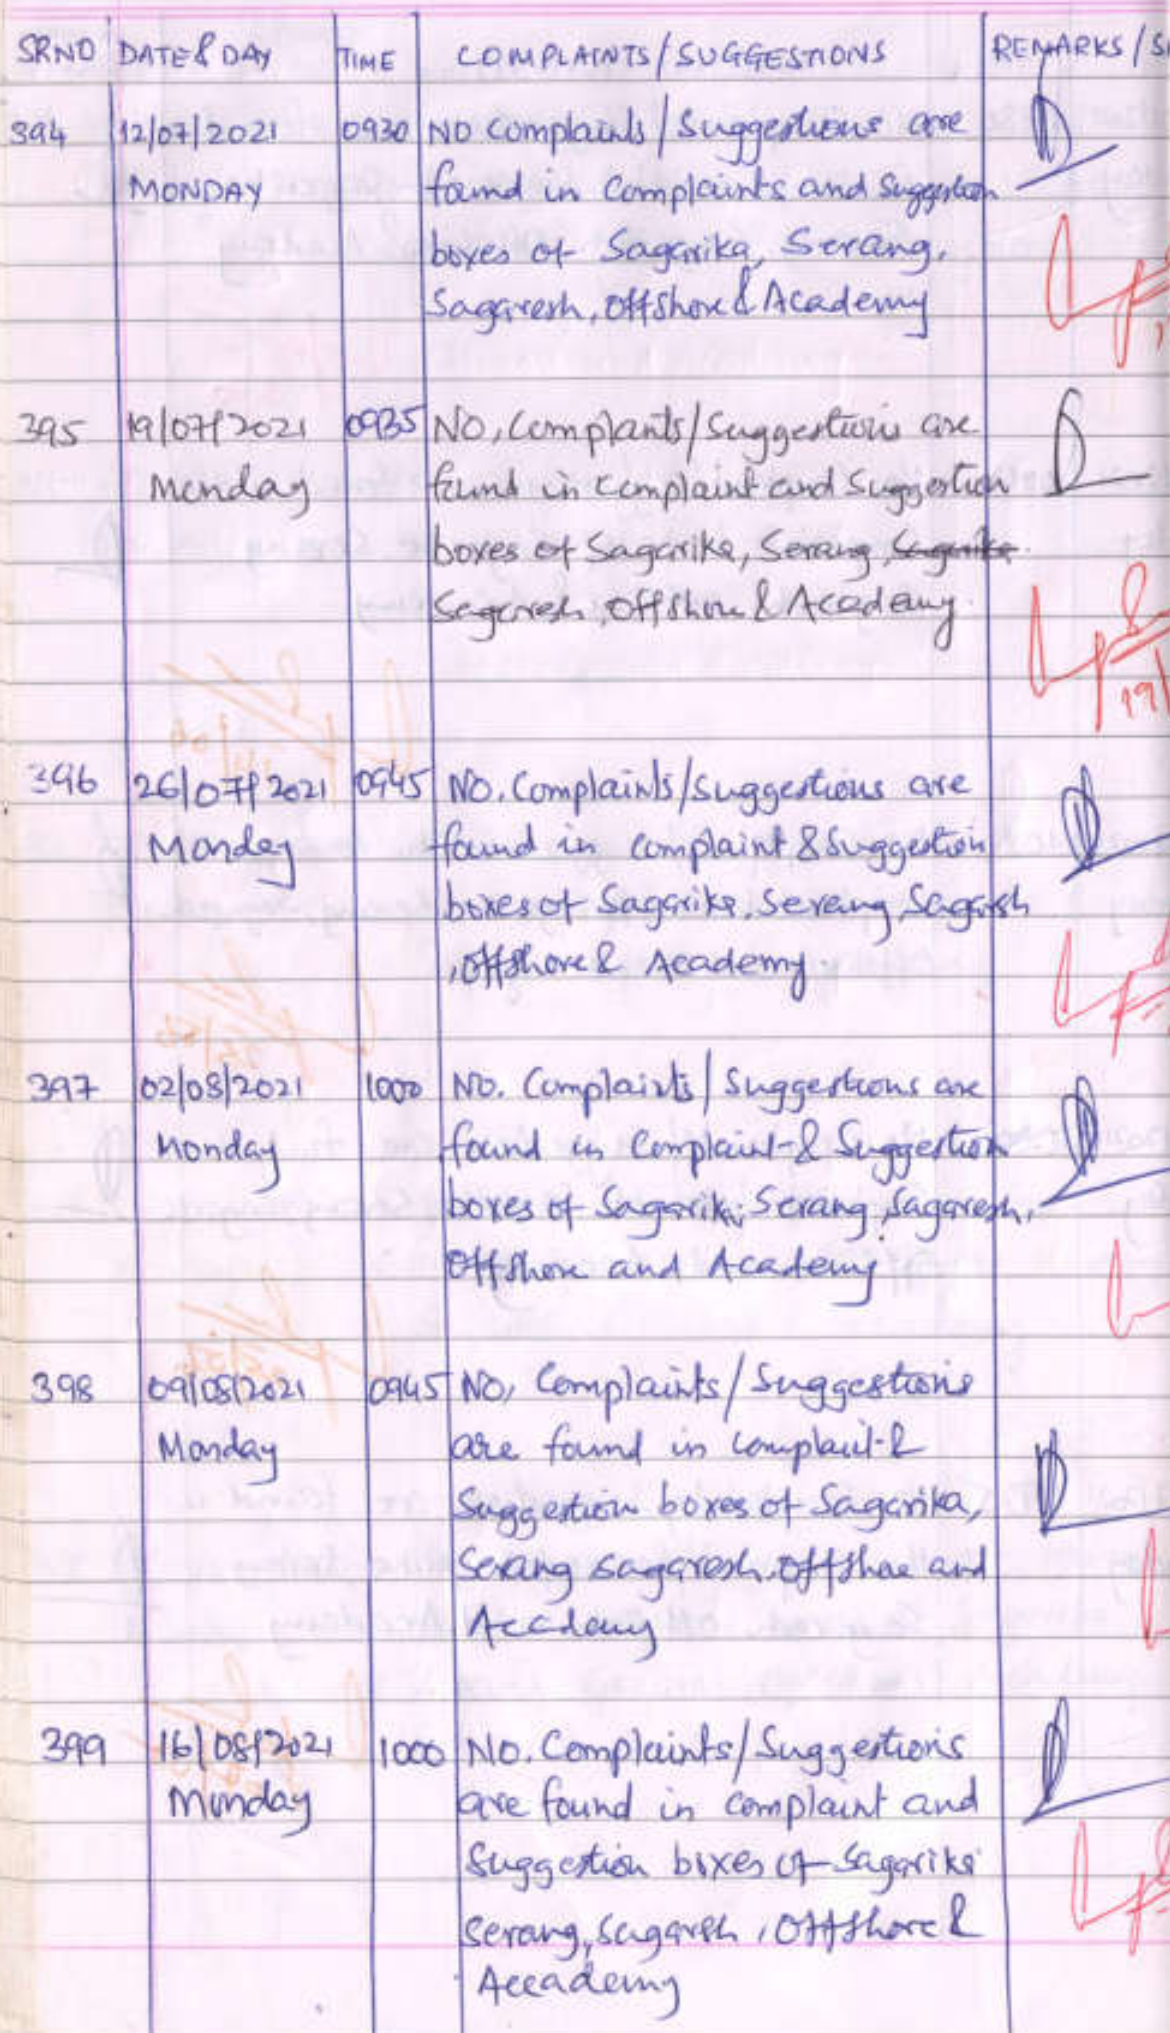 SRNO DATE & DAY TIME COMPLAINTS/SUGGESTIONS REMARKS/
394 12/07/2021 0930 NO complaints/Suggestions are
MONDAY found in complaints and Suggestion
boxes of Sagarika, Serang,
Sagaresh, Offshore & Academy
395 19/07/2021 0935 NO, Complaints/Suggestions are
Monday found in complaint and Suggestion
boxes of Sagarika, Serang, Sagarika
Sagaresh, Offshore & Academy
19/
396 26/07/2021 0945 NO. Complaints/Suggestions are
Monday found in complaint & Suggestion
boxes of Sagarika, Serang, Sagarsh
, Offshore & Academy.
397 02/08/2021 1000 No. Complaints/Suggestions are
Monday found in Complaint & Suggestion
boxes of Sagarika, Serang, Sagaresh,
Offshore and Academy
398 09/08/2021 0945 NO, Complaints/Suggestions
Monday are found in complaint &
Suggestion boxes of Sagarika,
Serang sagaresh, offshae and
Accdamy
399 16/08/2021 1000 No. Complaints/Suggestions
Monday are found in complaint and
Suggestion boxes of Sagarika
Serang, Sagarsh, Offshore &
Accademy